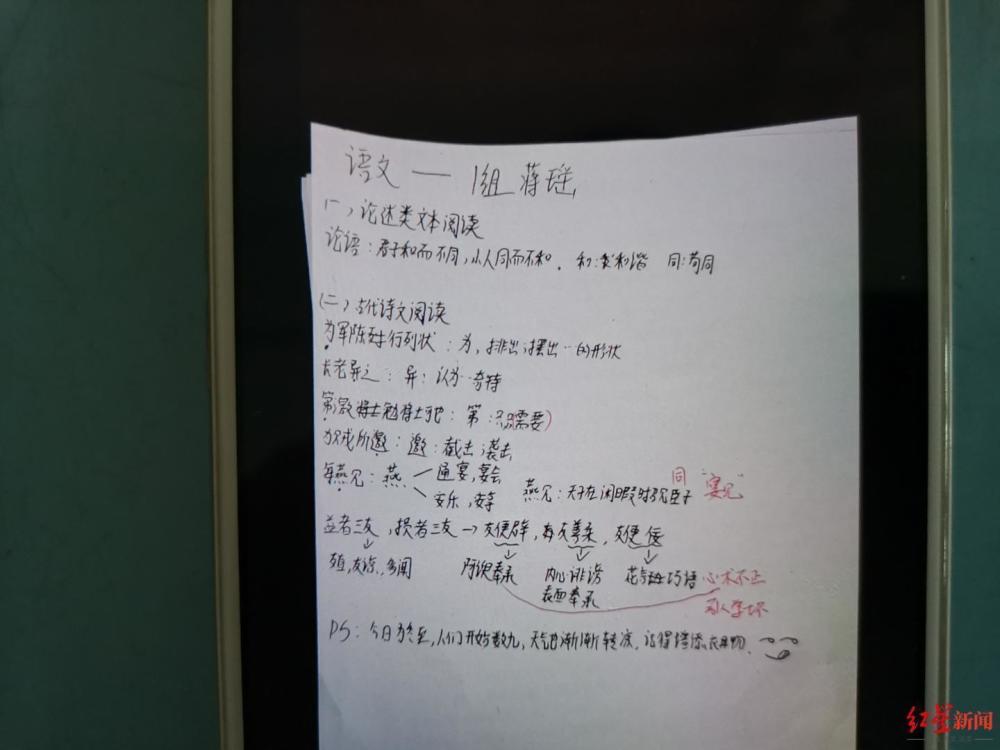 语文 — 1组 蒋瑶
(一) 论述类文本阅读
论语：君子和而不同，小人同而不和． 和：求和谐 同：苟同
(二) 古代诗文阅读
为军陈列行列状：为，排出 摆出…的形状
长老异之：异：认为…奇特
第激将士勉栲土地：第：只(需要)
为戎所邀：邀：截击 袭击
每燕见：燕 通宴，宴会
安乐，安享
燕见：天子在闲暇时召见臣子 同“宴见”
益者三友，损者三友→友便辟，友善柔，友便佞
直，友谅，多闻 阿谀奉承 内心诽谤 花言巧语 心术不正
表面奉承
PS：今日为冬至，人们开始数九，天气日渐渐转凉，记得增添衣物．
红星新闻